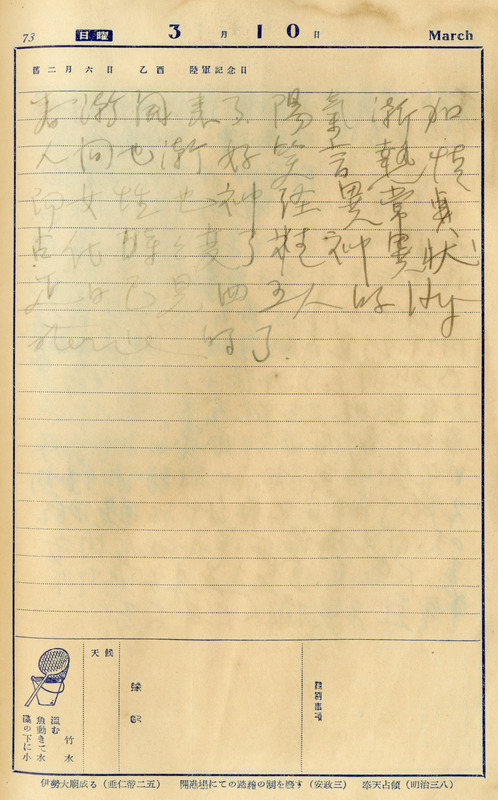 73 日曜 3月10日 March
舊二月六日 乙酉 陸軍記念日
春漸回来了陽氣漸加
人间也漸好笑言熱情
女性也神经異常
変了精神異狀
近日已見四五人的Hy-
sterie的了.
天候
礁の下に小
魚動きて水
溫む
竹水
伊勢大廟成る（垂仁帝二五） 開港場にての踏繪の制を廢す（安政三） 奉天占領（明治三八）